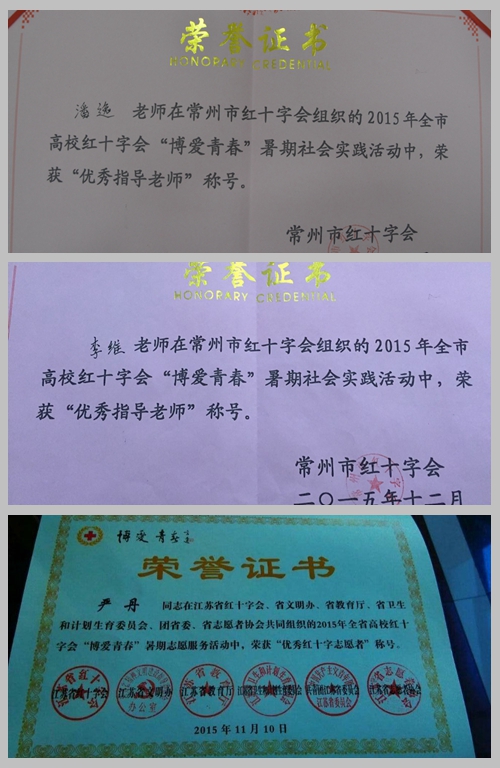 荣誉证书
HONORARY CREDENTIAL
潘逸 老师在常州市红十字会组织的2015年全市
高校红十字会“博爱青春”暑期社会实践活动中，荣
获“优秀指导老师”称号。
常州市红十字会
荣誉证书
HONORARY CREDENTIAL
李维 老师在常州市红十字会组织的2015年全市
高校红十字会“博爱青春”暑期社会实践活动中，荣
获“优秀指导老师”称号。
常州市红十字会
二〇一五年十二月
博爱青春
荣誉证书
严丹 同志在江苏省红十字会、省文明办、省教育厅、省卫生
和计划生育委员会、团省委、省志愿者协会共同组织的2015年全省高校红十
字会“博爱青春”暑期志愿服务活动中，荣获“优秀红十字志愿者”称号。
江苏省红十字会 江苏省文明办 江苏省教育厅 江苏省卫生和计划生育委员会 共青团江苏省委员会 江苏省志愿者协会
办公室 江苏省委员会
2015年11月10日